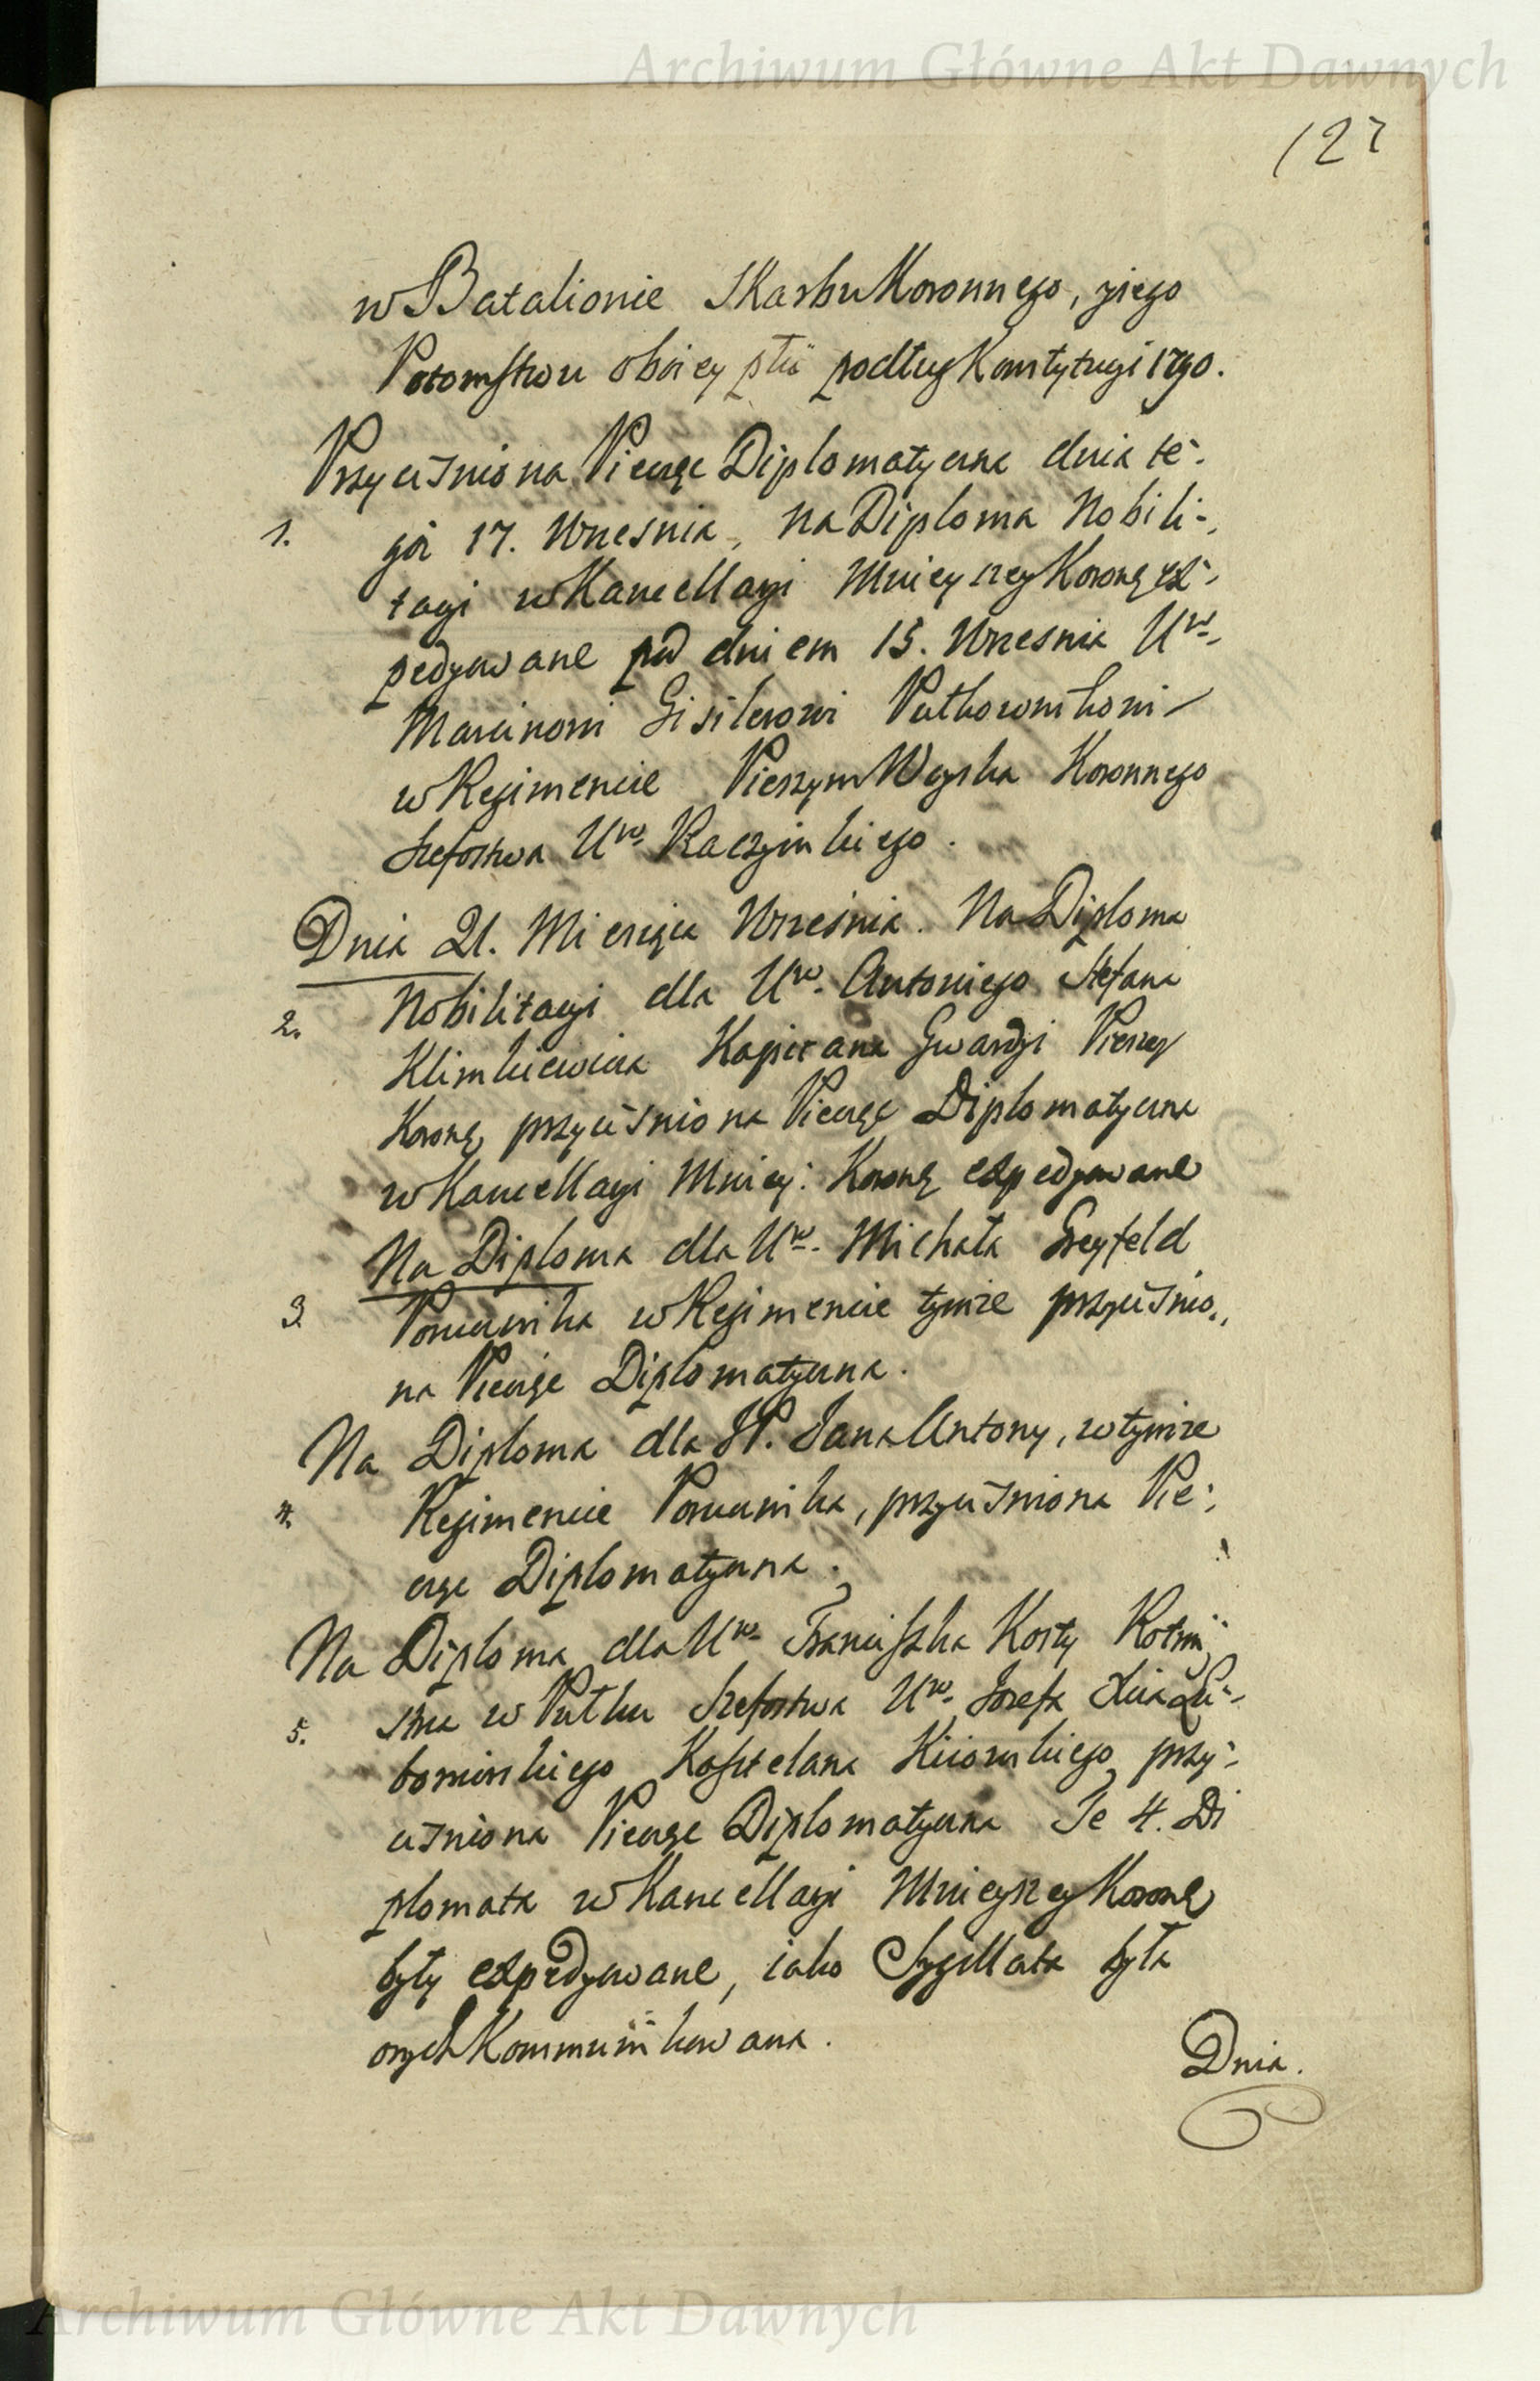 Archiwum Główne Akt Dawnych
127
w Batalionie Skarbu Koronnego, y iego
Potomstwu oboiey płci podług Konstytucyi 1790.
Przyciśniona Pieczęć Diplomatyczna dnia te-
1. goż 17. Wrzesnia, na Diploma Nobili-
tacyi w Kancellaryi Mnieyszey Koronę ex-
pedyowane pod dniem 15. Wrzesnia Ur.
Marcinowi Gislerowi Pułkownikowi
w Regimencie Pieszym Woyska Koronnego
Szefostwa Ur. Raczynskiego.
Dnia 21. Miesiąca Wrzesnia. Na Diploma
2. Nobilitacyi dla Ur. Antoniego Stefana
Klimkiewicza Kapitana Gwardyi Pieszey
Koronę, przyciśniona Pieczęć Diplomatyczna
w Kancellaryi Mniey: Koronę expedyowane
Na Diploma dla Ur. Michała Greyfeld
3. Porucznika w Regimencie tymże przyciśnio-
na Pieczęć Diplomatyczna.
Na Diploma dla JP. Jana Antony, w tymże
4. Regimencie Porucznika, przyciśniona Pie-
częć Diplomatyczna.
Na Diploma dla Ur. Franciszka Korty Rotmi-
5. strza w Pułku Szefostwa Ur. Jozefa Xcia Lu-
bomirskiego Kasztelana Kiiowskiego, przy-
ciśniona Pieczęć Diplomatyczna Te 4. Di
plomata w Kancellaryi Mnieyszey Koronę
były expedyowane, iako Sygillata była
onych Kommunikowana.
Dnia.
Archiwum Główne Akt Dawnych